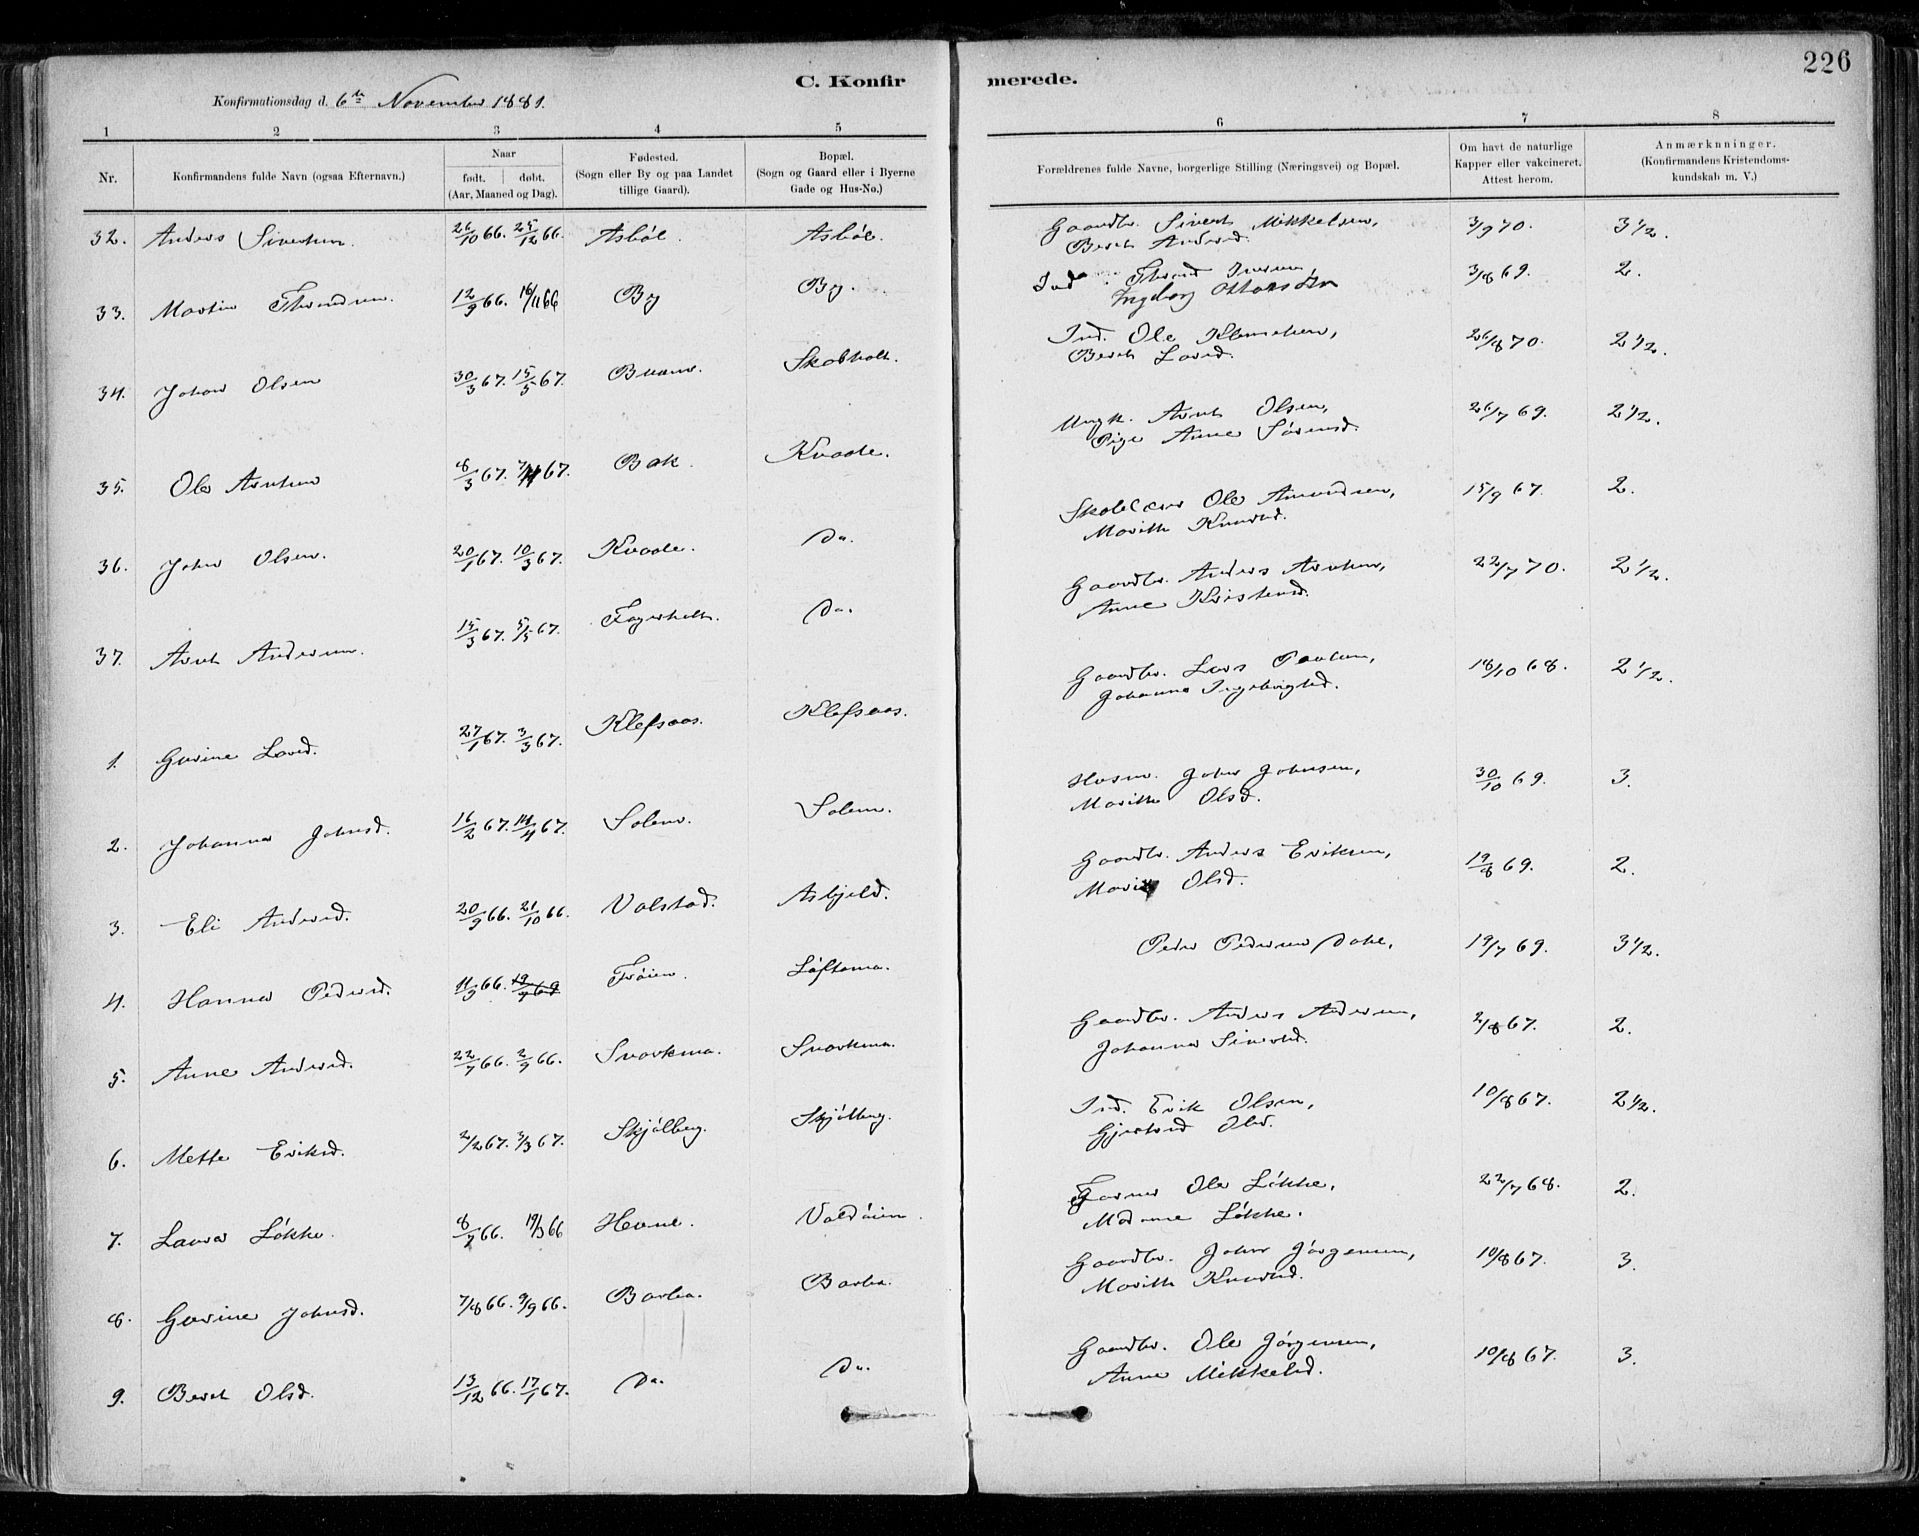 226
C. Konfirmerede.
Konfirmationsdag d. 6te November 1881.
1 2 3 4 5 6 7 8
Nr. Konfirmandens fulde Navn (ogsaa Efternavn). Naar født. døbt. (Aar, Maaned og Dag). Fødested. (Sogn eller By og paa Landet tillige Gaard). Bopæl. (Sogn og Gaard eller i Byerne Gade og Hus-No.) Forældrenes fulde Navne, borgerlige Stilling (Næringsvei) og Bopæl. Om havt de naturlige Kapper eller vakcineret. Attest herom. Anmærknninger. (Konfirmandens Kristendomskundskab m. V.)
32. Anders Sivertsen 26/10 66. 25/12 66. Asbøl. Asbøl. Gaardbr. Sivert Mikkelsen, 3/9 70. 3 1/2.
Berit Andersd.
33. Martin Throndsen. 12/9 66. 16/11 66 By By. Ind. Thrond Iversen 3/8 69. 2.
Ingeborg Ottersdtr
34. Johan Olsen 30/3 67. 15/5 67. Skobholt. Ind. Ole Klemetsen, 26/8 70. 2 1/2.
Berit Larsd.
35. Ole Arntsen 8/3 67. 7/4 67. Bak. Kvaale. Ungk. Arnt Olsen, 26/7 69. 2 1/2.
Pige Anne Sørensd.
36. John Olsen. 20/1 67. 10/3 67. Kvaale. Do. Skolelærer Ole Amundsen, 15/9 67. 2.
Marith Knudsd.
37. Arnt Andersen 15/3 67. 5/5 67. Fagerholt. Do. Gaardbr. Anders Arntsen, 22/7 70. 2 1/2.
Anne Kristensd.
1. Gurine Larsd. 27/1 67. 3/3 67. Klefsaas. Klefsaas. Gaardbr. Lars Paulsen, 18/10 68. 2 1/2.
Johanna Ingebrigtsd.
2. Johanna Johnsd. 16/2 67. 14/4 67. Solem. Solem. Husm. John Johnsen, 30/10 69. 3.
Marith Olsd.
3. Eli Andersd. 20/9 66. 21/10 66. Valstad. Asbjeld. Gaardbr. Anders Eriksen, 19/8 69. 2.
Marit Olsd.
4. Hanna Pedersd. 11/3 66. 19/7 69 Trøien. Løftama. Peder Pedersen Dahl, 19/7 69. 3 1/2.
5. Anne Andersd. 22/7 66. 2/9 66. Snarkmo. Snarkmo. Gaardbr. Anders Andersen, 2/8 67. 2.
Johanna Sivertsd.
6. Mette Eriksd. 2/2 67. 3/3 67. Skjølberg. Skjølberg. Ind. Erik Olsen, 10/8 67. 2 1/2.
Gjertrud Olsd.
7. Laura Løkke. 8/7 66. 19/3 66 Hevne. Valdøien. Garver Ole Løkke, 22/7 68. 2.
Madame Løkke.
8. Gurine Johnsd. 7/8 66. 9/9 66. Barbo. Barbo. Gaardbr. John Jørgensen, 10/8 67. 3.
Marith Knudsd.
9. Berit Olsd. 13/12 66. 17/1 67. Do. Do. Gaardbr. Ole Jørgensen, 10/8 67. 3.
Anne Mikkelsd.